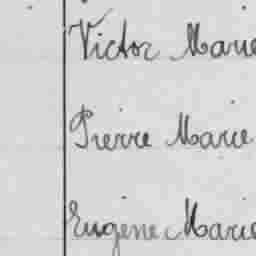 Victor Marie
Pierre Marie
Eugène Marie